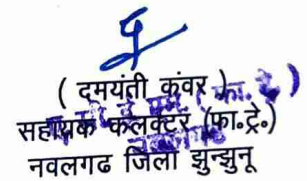 ( दमयंती कंवर )
सहायक कलक्टर (फा.ट्रे.)
नवलगढ जिला झुन्झुनू